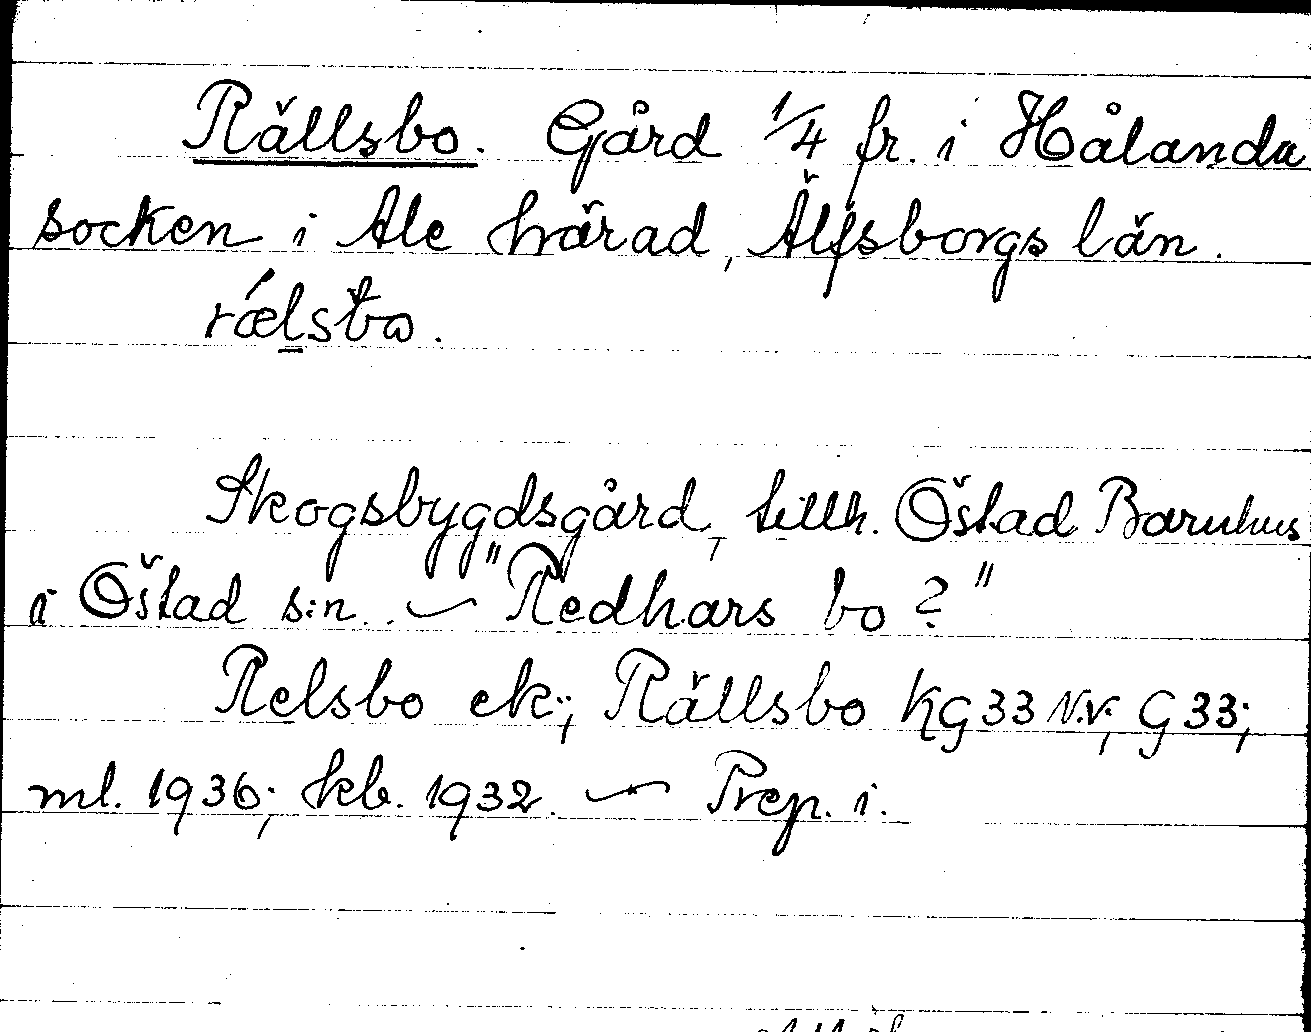 Rällsbo. Gård 1/4 fr. i Hålanda
socken i Ale härad, Älfsborgs län.
rǽlsbo.
Skogsbygdsgård, tillh. Östad Barnhus
i Östad s:n. – "Redhars bo ?"
Relsbo ek.; Rällsbo KG33 N.V.; G33;
ml. 1936; kb. 1932. – Prep. i.